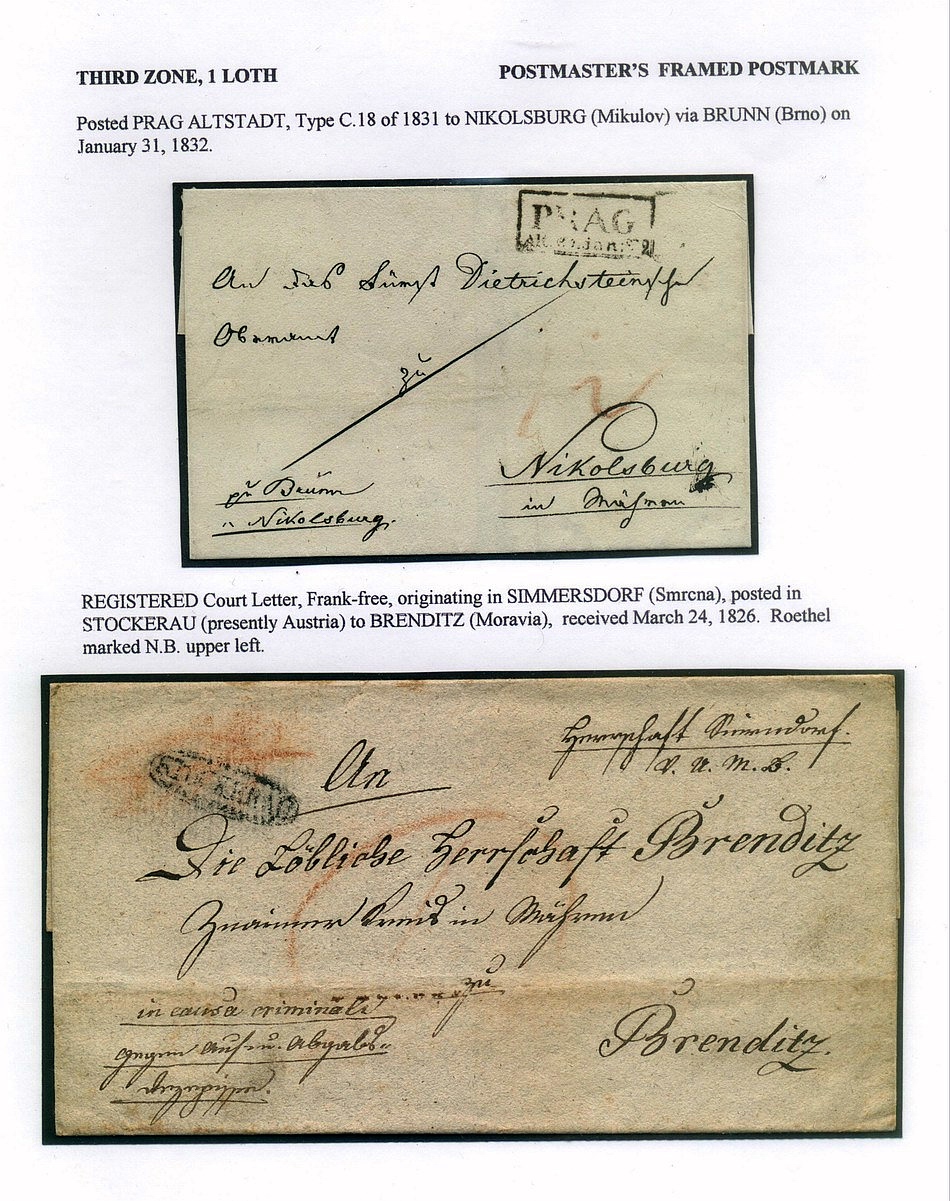 THIRD ZONE, 1 LOTH
POSTMASTER'S FRAMED POSTMARK
Posted PRAG ALTSTADT, Type C.18 of 1831 to NIKOLSBURG (Mikulov) via BRUNN (Brno) on
January 31, 1832.
PRAG
An das Fürst Dietrichstein'sche
Oberamt
zu
Nikolsburg
in Mähren
Brünn
Nikolsburg.
REGISTERED Court Letter, Frank-free, originating in SIMMERSDORF (Smrcna), posted in
STOCKERAU (presently Austria) to BRENDITZ (Moravia), received March 24, 1826. Roethel
marked N.B. upper left.
Herrschaft
V. U. M. B.
STOCKERAU
An
Die Löbliche Herrschaft Brenditz
Znaimer Kreis in Mähren
zu
Brenditz.
in causa criminali
gegen